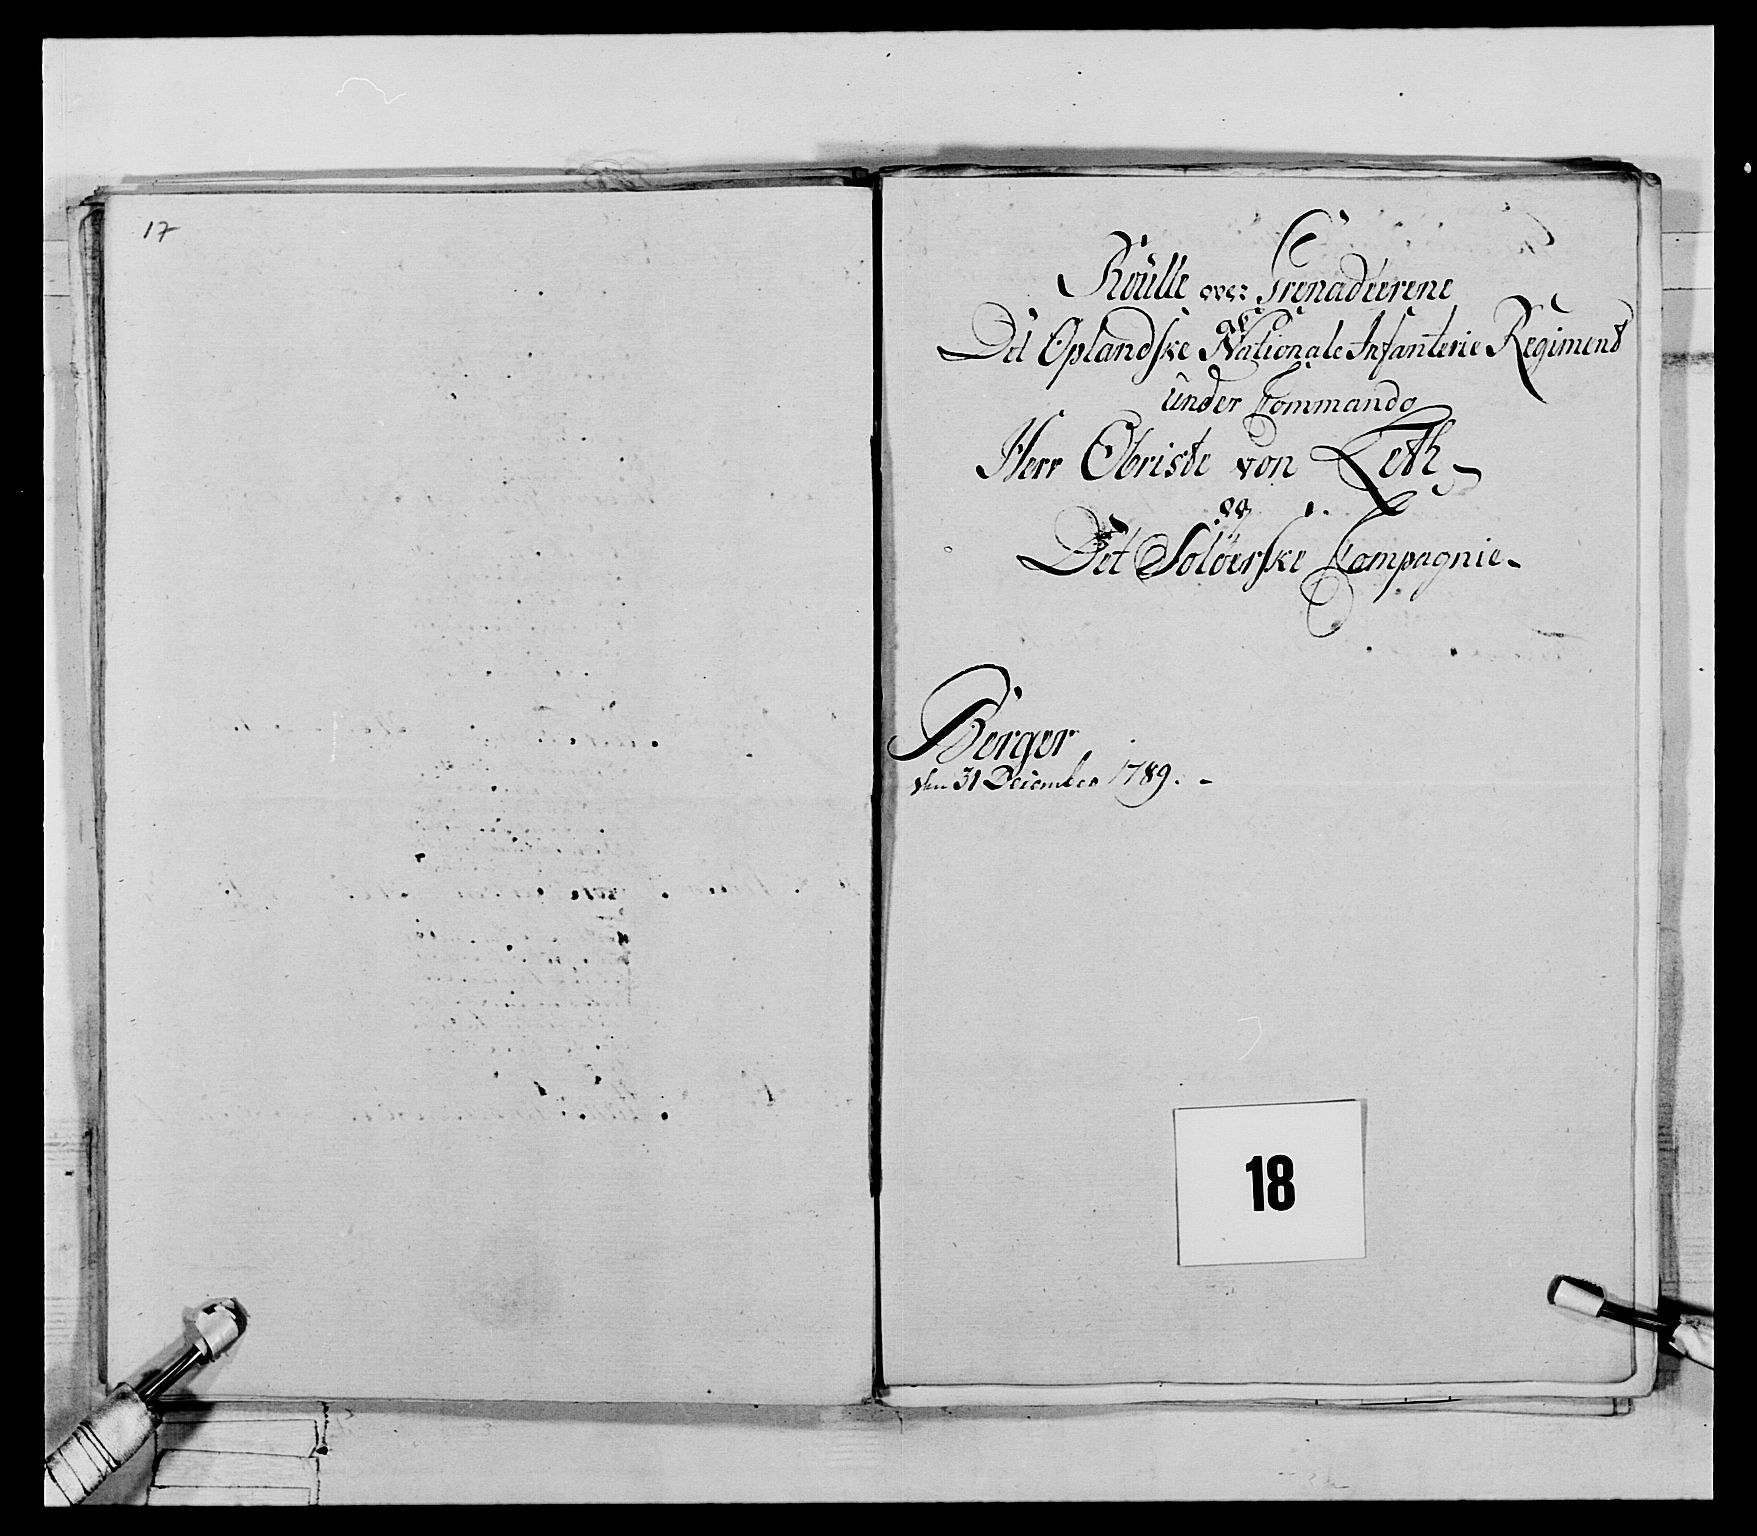 17
Roülle over Grenadeerene
af
Det Oplandske Nationale Infanterie Regiment
ünder Commando
Herr Obriste von Zeth
og
Det Solöerske Compagnie.
Berger
den 31 December 1789.
18